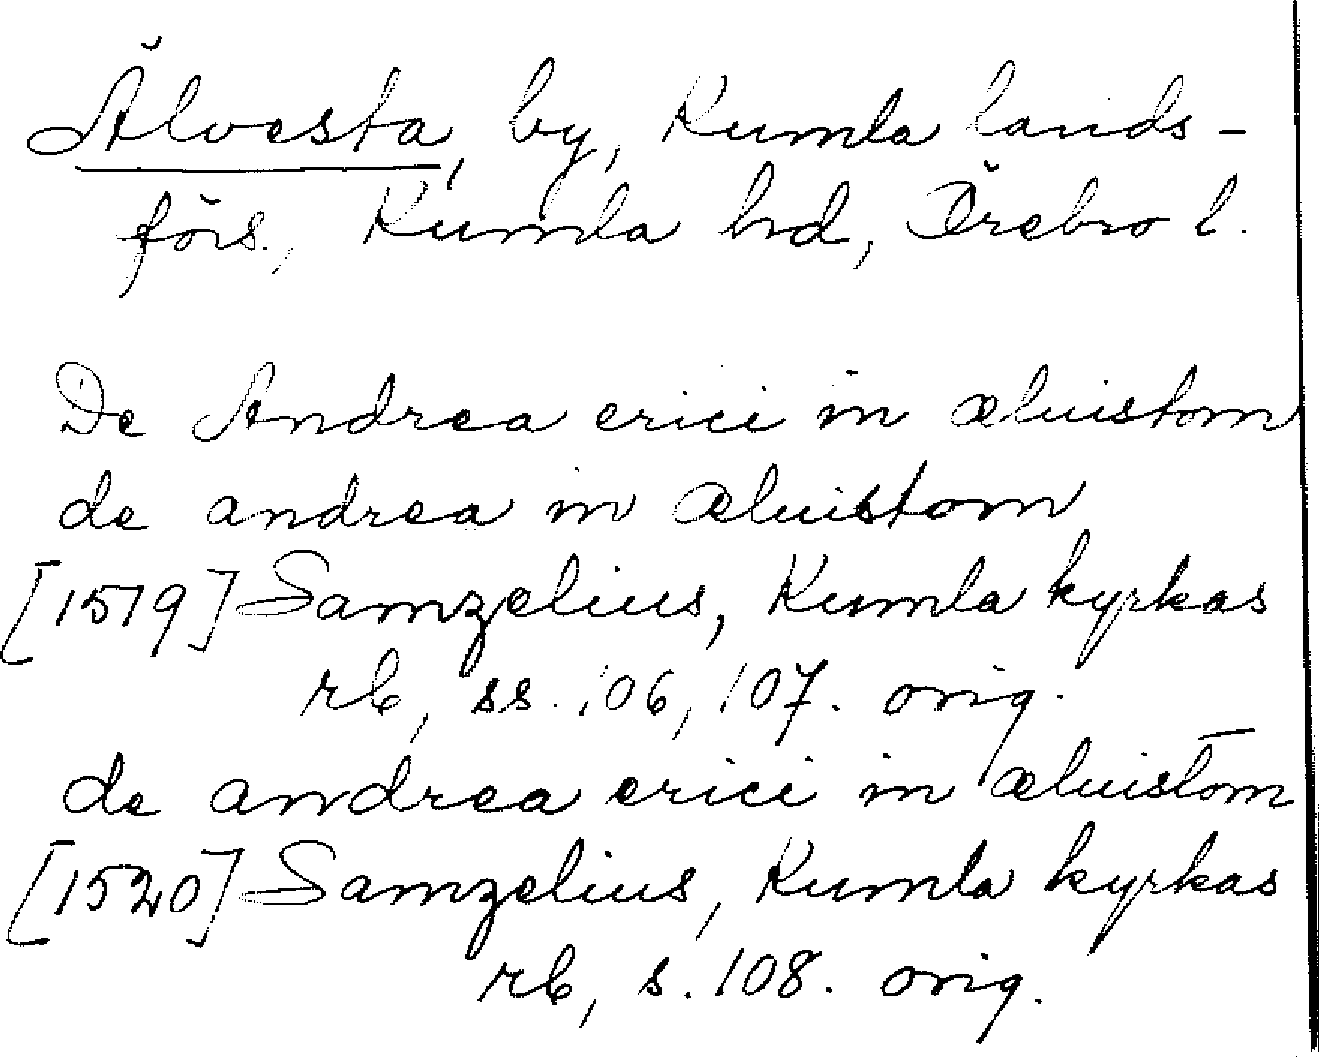 Älvesta, by, Kumla lands-
förs., Kumla hd, Örebro l.
De Andrea erici in æluistom
de andrea in Æluistom
[1519] Samzelius, Kumla kyrkas
rb, ss. 106, 107. orig.
de andrea erici in æluistom̅
[1520] Samzelius, Kumla kyrkas
rb, s. 108. orig.